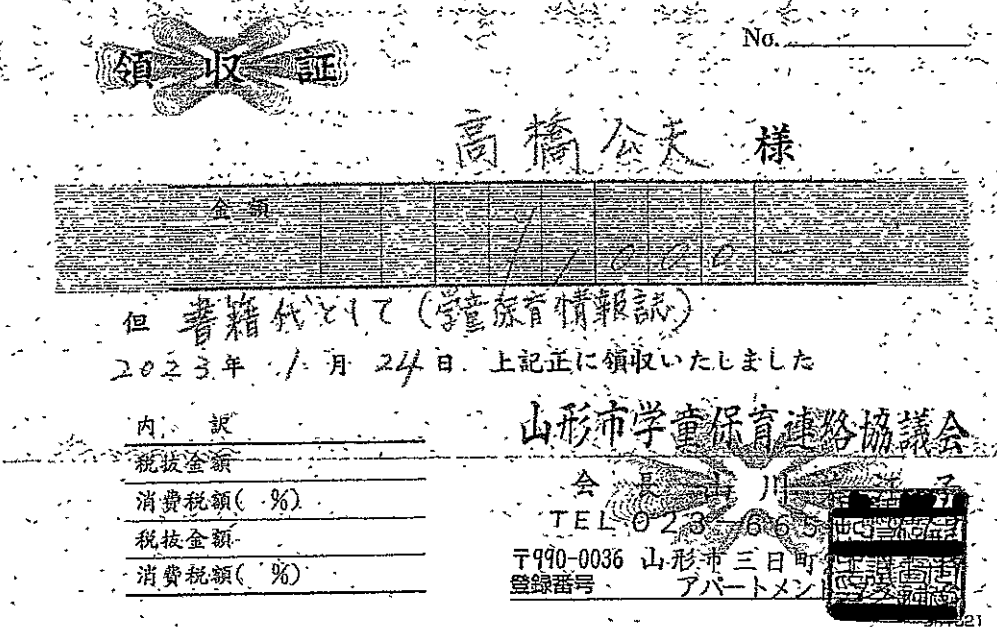 No.
領収証
高橋公夫 様
金額
1,000-
但 書籍代として(学童保育情報誌)
2023年 1月 24日 上記正に領収いたしました
内 訳
税抜金額
消費税額( %)
税抜金額
消費税額( %)
山形市学童保育連絡協議会
会長 山川
TEL 023-665
〒990-0036 山形市三日町
登録番号 アパートメント